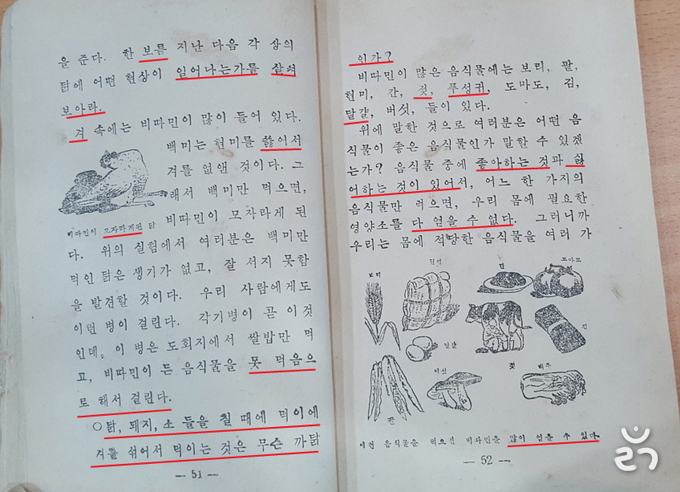 을 준다. 한 보름 지난 다음 각 상의
닭에 어떤 현상이 일어나는가를 살펴
보아라.
겨 속에는 비따민이 많이 들어 있다.
백미는 현미를 쓿어서
겨를 없앤 것이다. 그
래서 백미만 먹으면,
비따민이 모자라게 된 닭
비따민이 모자라게 된
다. 위의 실험에서 여러분은 백미만
먹인 닭은 생기가 없고, 잘 서지 못함
을 발견할 것이다. 우리 사람에게도
이런 병이 걸린다. 각기병이 곧 이것
인데, 이 병은 도회지에서 쌀밥만 먹
고, 비따민이 든 음식물을 못 먹음으
로 해서 걸린다.
○닭, 돼지, 소 들을 칠 때에 먹이에
겨를 섞어서 먹이는 것은 무슨 까닭
— 51 —
인가?
비따민이 많은 음식물에는 보리, 팥,
현미, 간, 젖, 푸성귀, 도마도, 김,
달걀, 버섯, 들이 있다.
위에 말한 것으로 여러분은 어떤 음
식물이 좋은 음식물인가 말할 수 있겠
는가? 음식물 중에 좋아하는 것과 싫
어하는 것이 있어서, 어느 한 가지의
음식물만 먹으면, 우리 몸에 필요한
영양소를 다 얻을 수 없다. 그러니까
우리는 몸에 적당한 음식물을 여러 가
보리
도마도
달걀
김
버섯
젖
배추
팥
이런 음식물을 먹으면 비따민을 많이 얻을 수 있다.
— 52 —